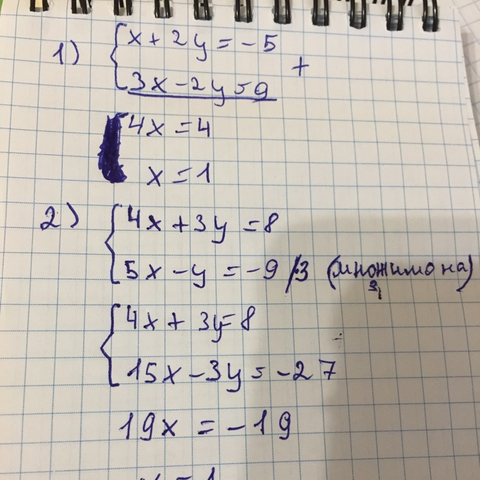 1) x + 2y = -5
3x - 2y = 9 +
4x = 4
x = 1
2) 4x + 3y = 8
5x - y = -9 /·3 (множимо на 3)
4x + 3y = 8
15x - 3y = -27
19x = -19